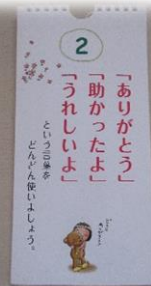 2
「ありがとう」
「助かったよ」
「うれしいよ」
という言葉を
どんどん使いましょう。